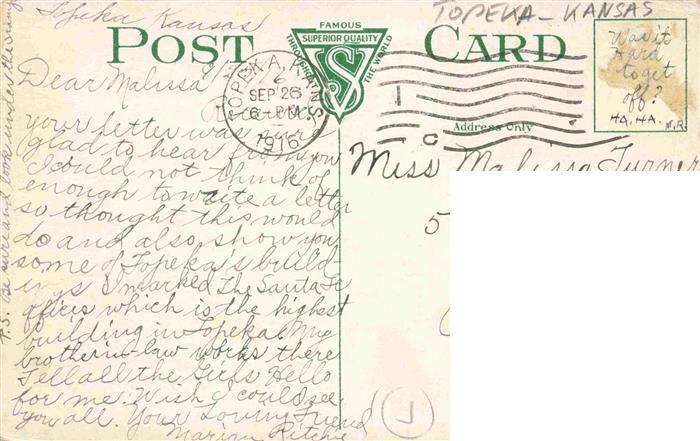 TOPEKA - KANSAS
Topeka Kansas
POST CARD
FAMOUS
SUPERIOR QUALITY
THROUGHOUT THE WORLD
VS
TOPEKA, KANS.
6
SEP 26
6 - PM
1916
Address Only
Was it
Hard
to get
off?
HA. HA.
M.R.
Dear Malissa
your letter was
glad to hear from you
I could not think of
enough to write a letter
so thought this would
do and also show you
some of Topeka's build-
ings I marked The Santa Fe
offices which is the highest
building in Topeka. My
brother-in-law works there
Tell all the Girls Hello
for me. Wish I could see
you all. Your Loving Friend
Marian Ritchie
P.S. Be sure and look under the stamp
Miss Malissa Turner
5
1